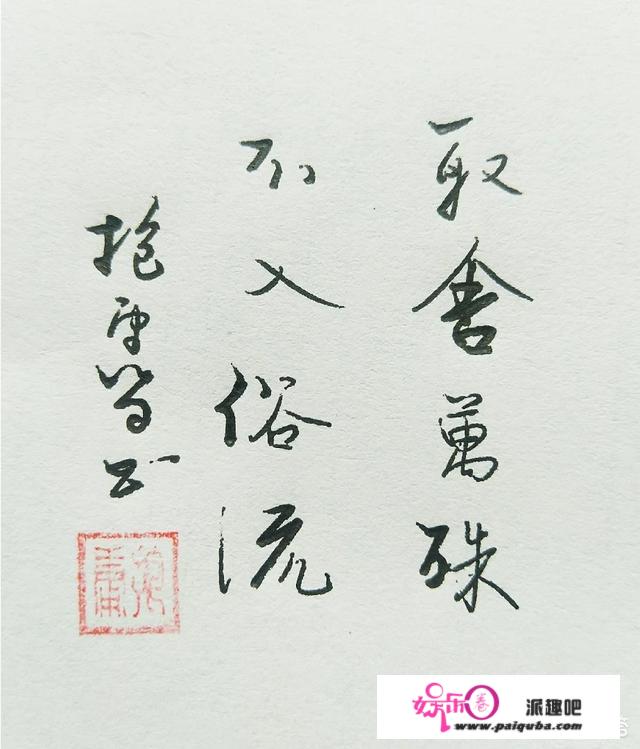 取舍萬殊
不入俗流
抱
书
娱乐圈
派趣吧
www.paiquba.com